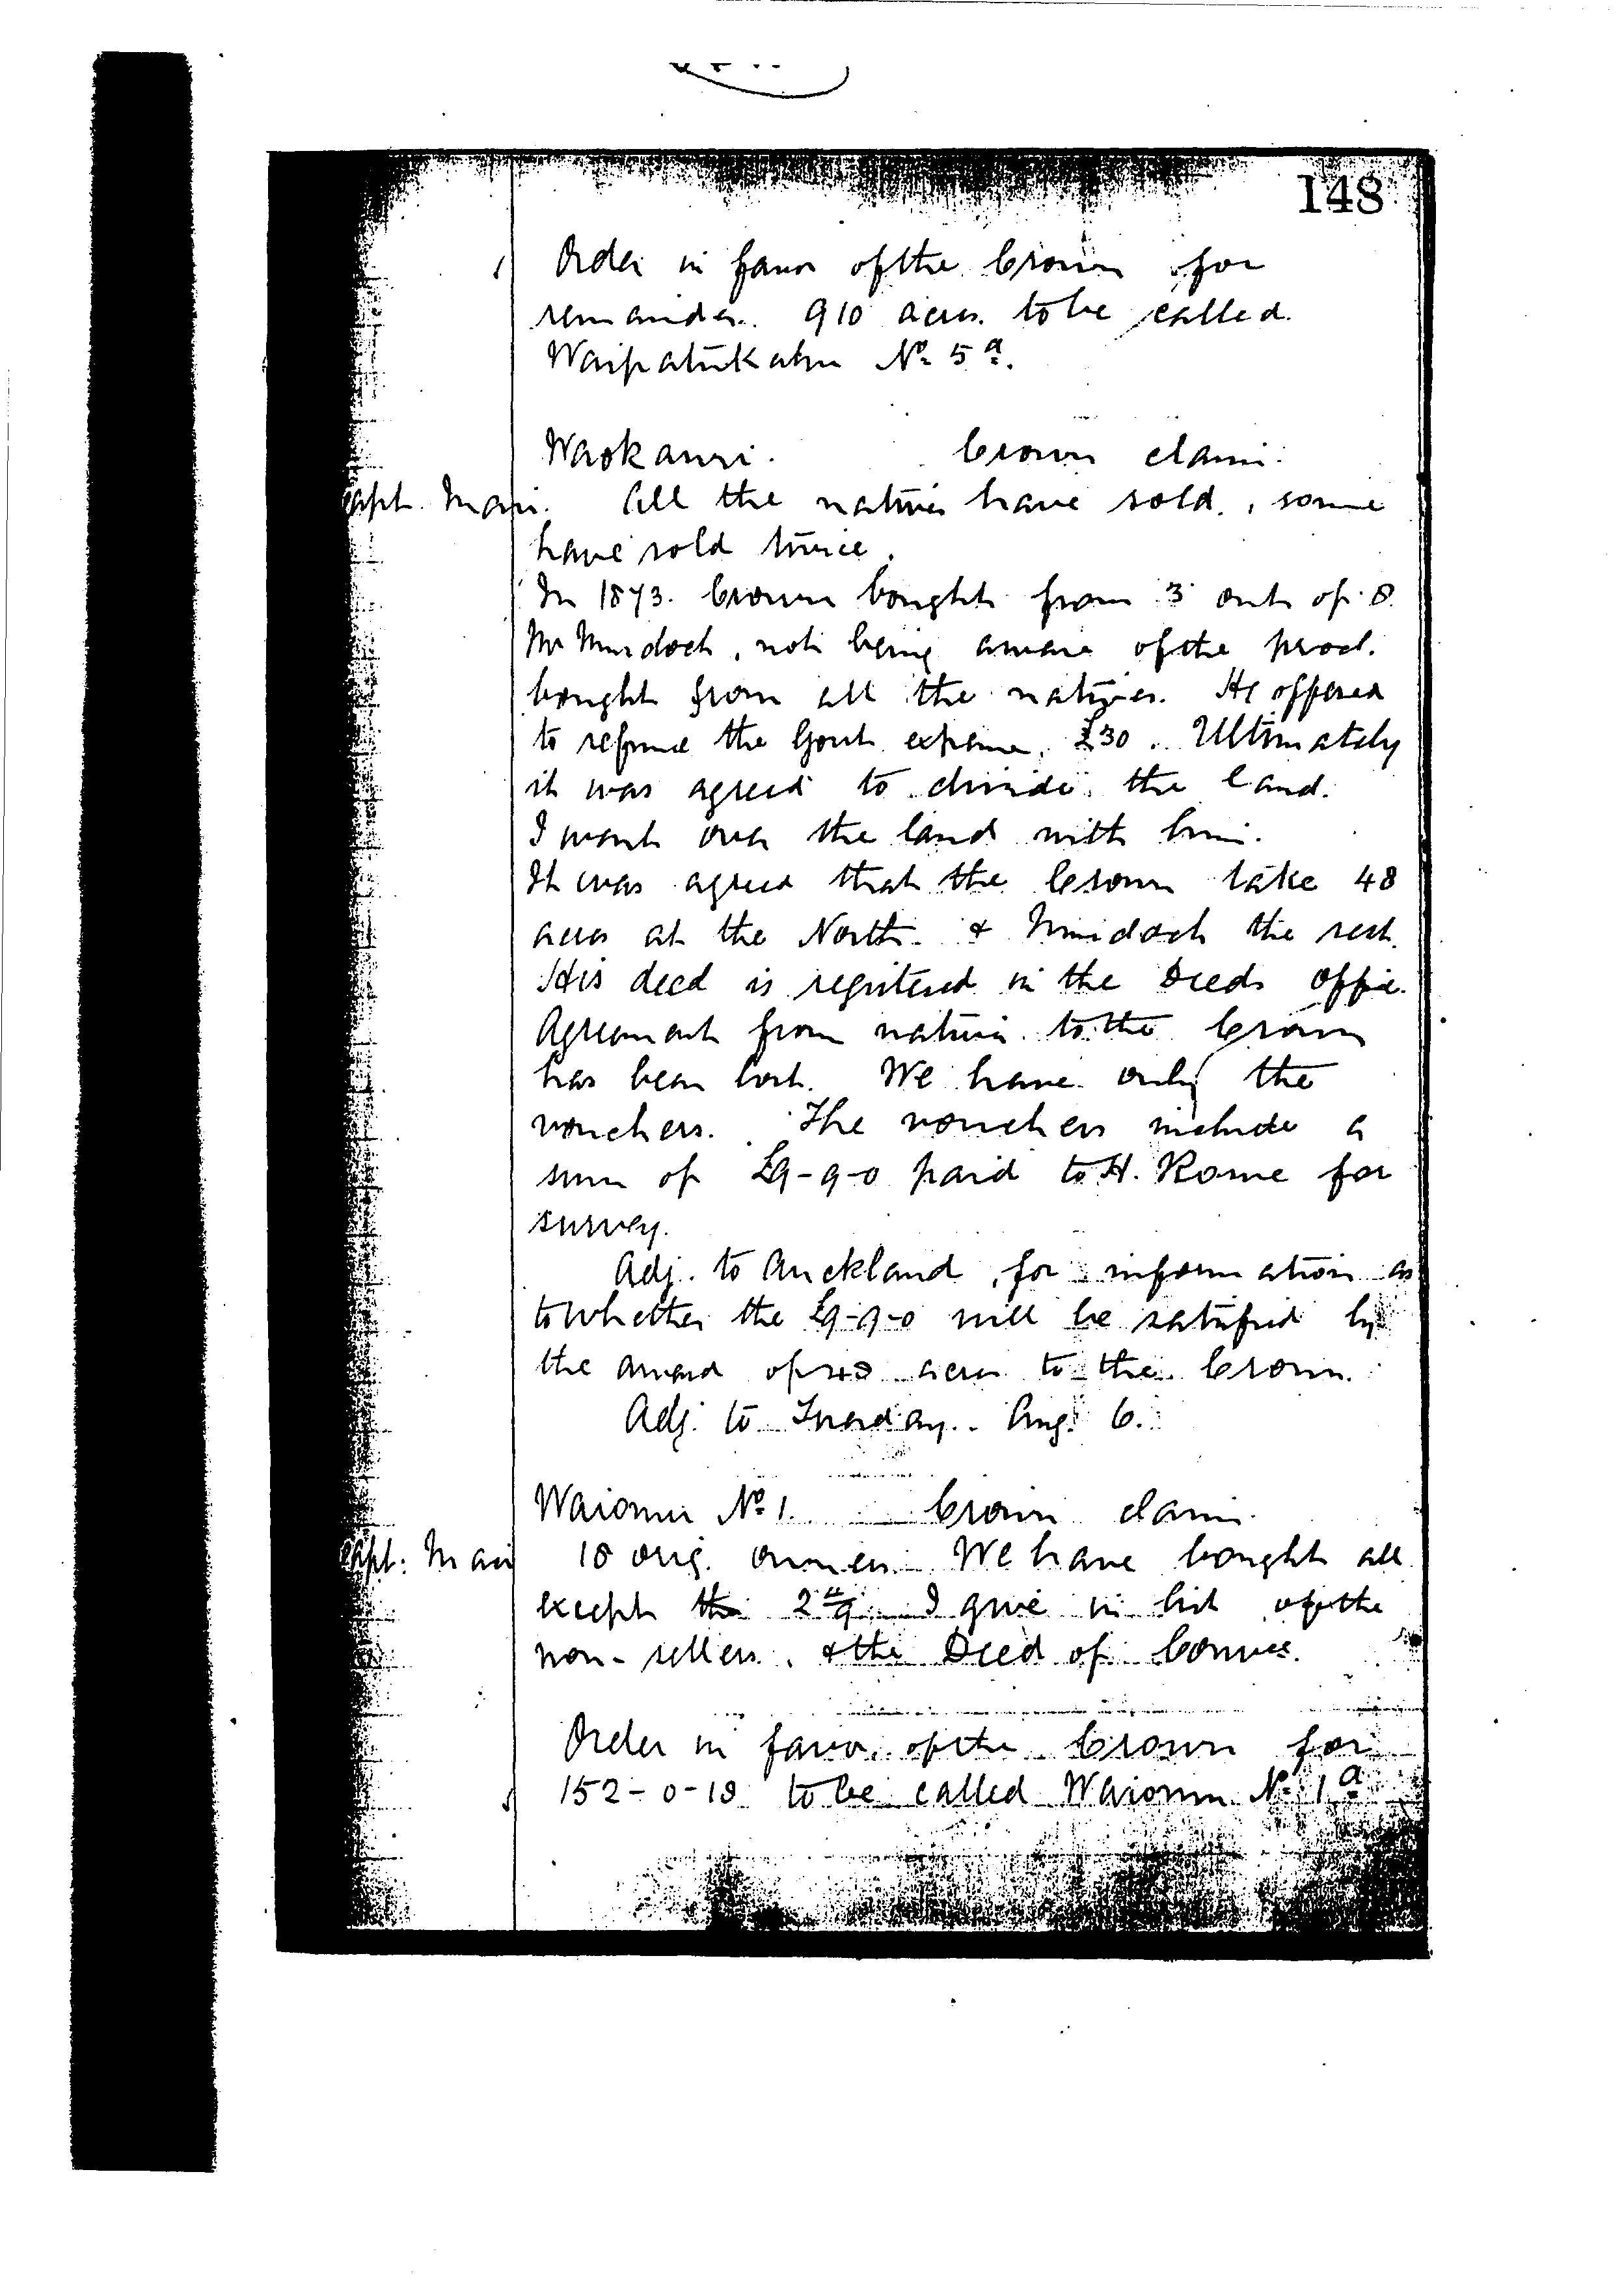 148
Order in favor of the Crown for
remainder. 910 acres. to be called.
Waipatukahu No. 5a.
Waokauri. Crown claim.
Capt. Mair. All the natives have sold, some
have sold twice.
In 1873. Crown bought from 3 out of 8.
Mr Murdoch, not being aware of the procl.
bought from all the natives. He offered
to refund the Govt. expense, £30. Ultimately
it was agreed to divide the land.
I went over the land with him.
It was agreed that the Crown take 48
acres at the North. & Murdoch the rest.
His deed is registered in the Deeds Office.
Agreement from natives to the Crown
has been lost. We have only the
vouchers. The vouchers include a
sum of £9-9-0 paid to H. Rowe for
survey.
Adj. to Auckland, for information as
to whether the £9-9-0 will be satisfied by
the award of 48 acres to the Crown.
Adj. to Tuesday. Aug. 6.
Waiomu No. 1. Crown claim.
Capt. Mair 18 orig. owners. We have bought all
except I give in list of the
non-sellers. & the Deed of Convce.
Order in favor of the Crown for
152-0-18 to be called Waiomu No. 1a